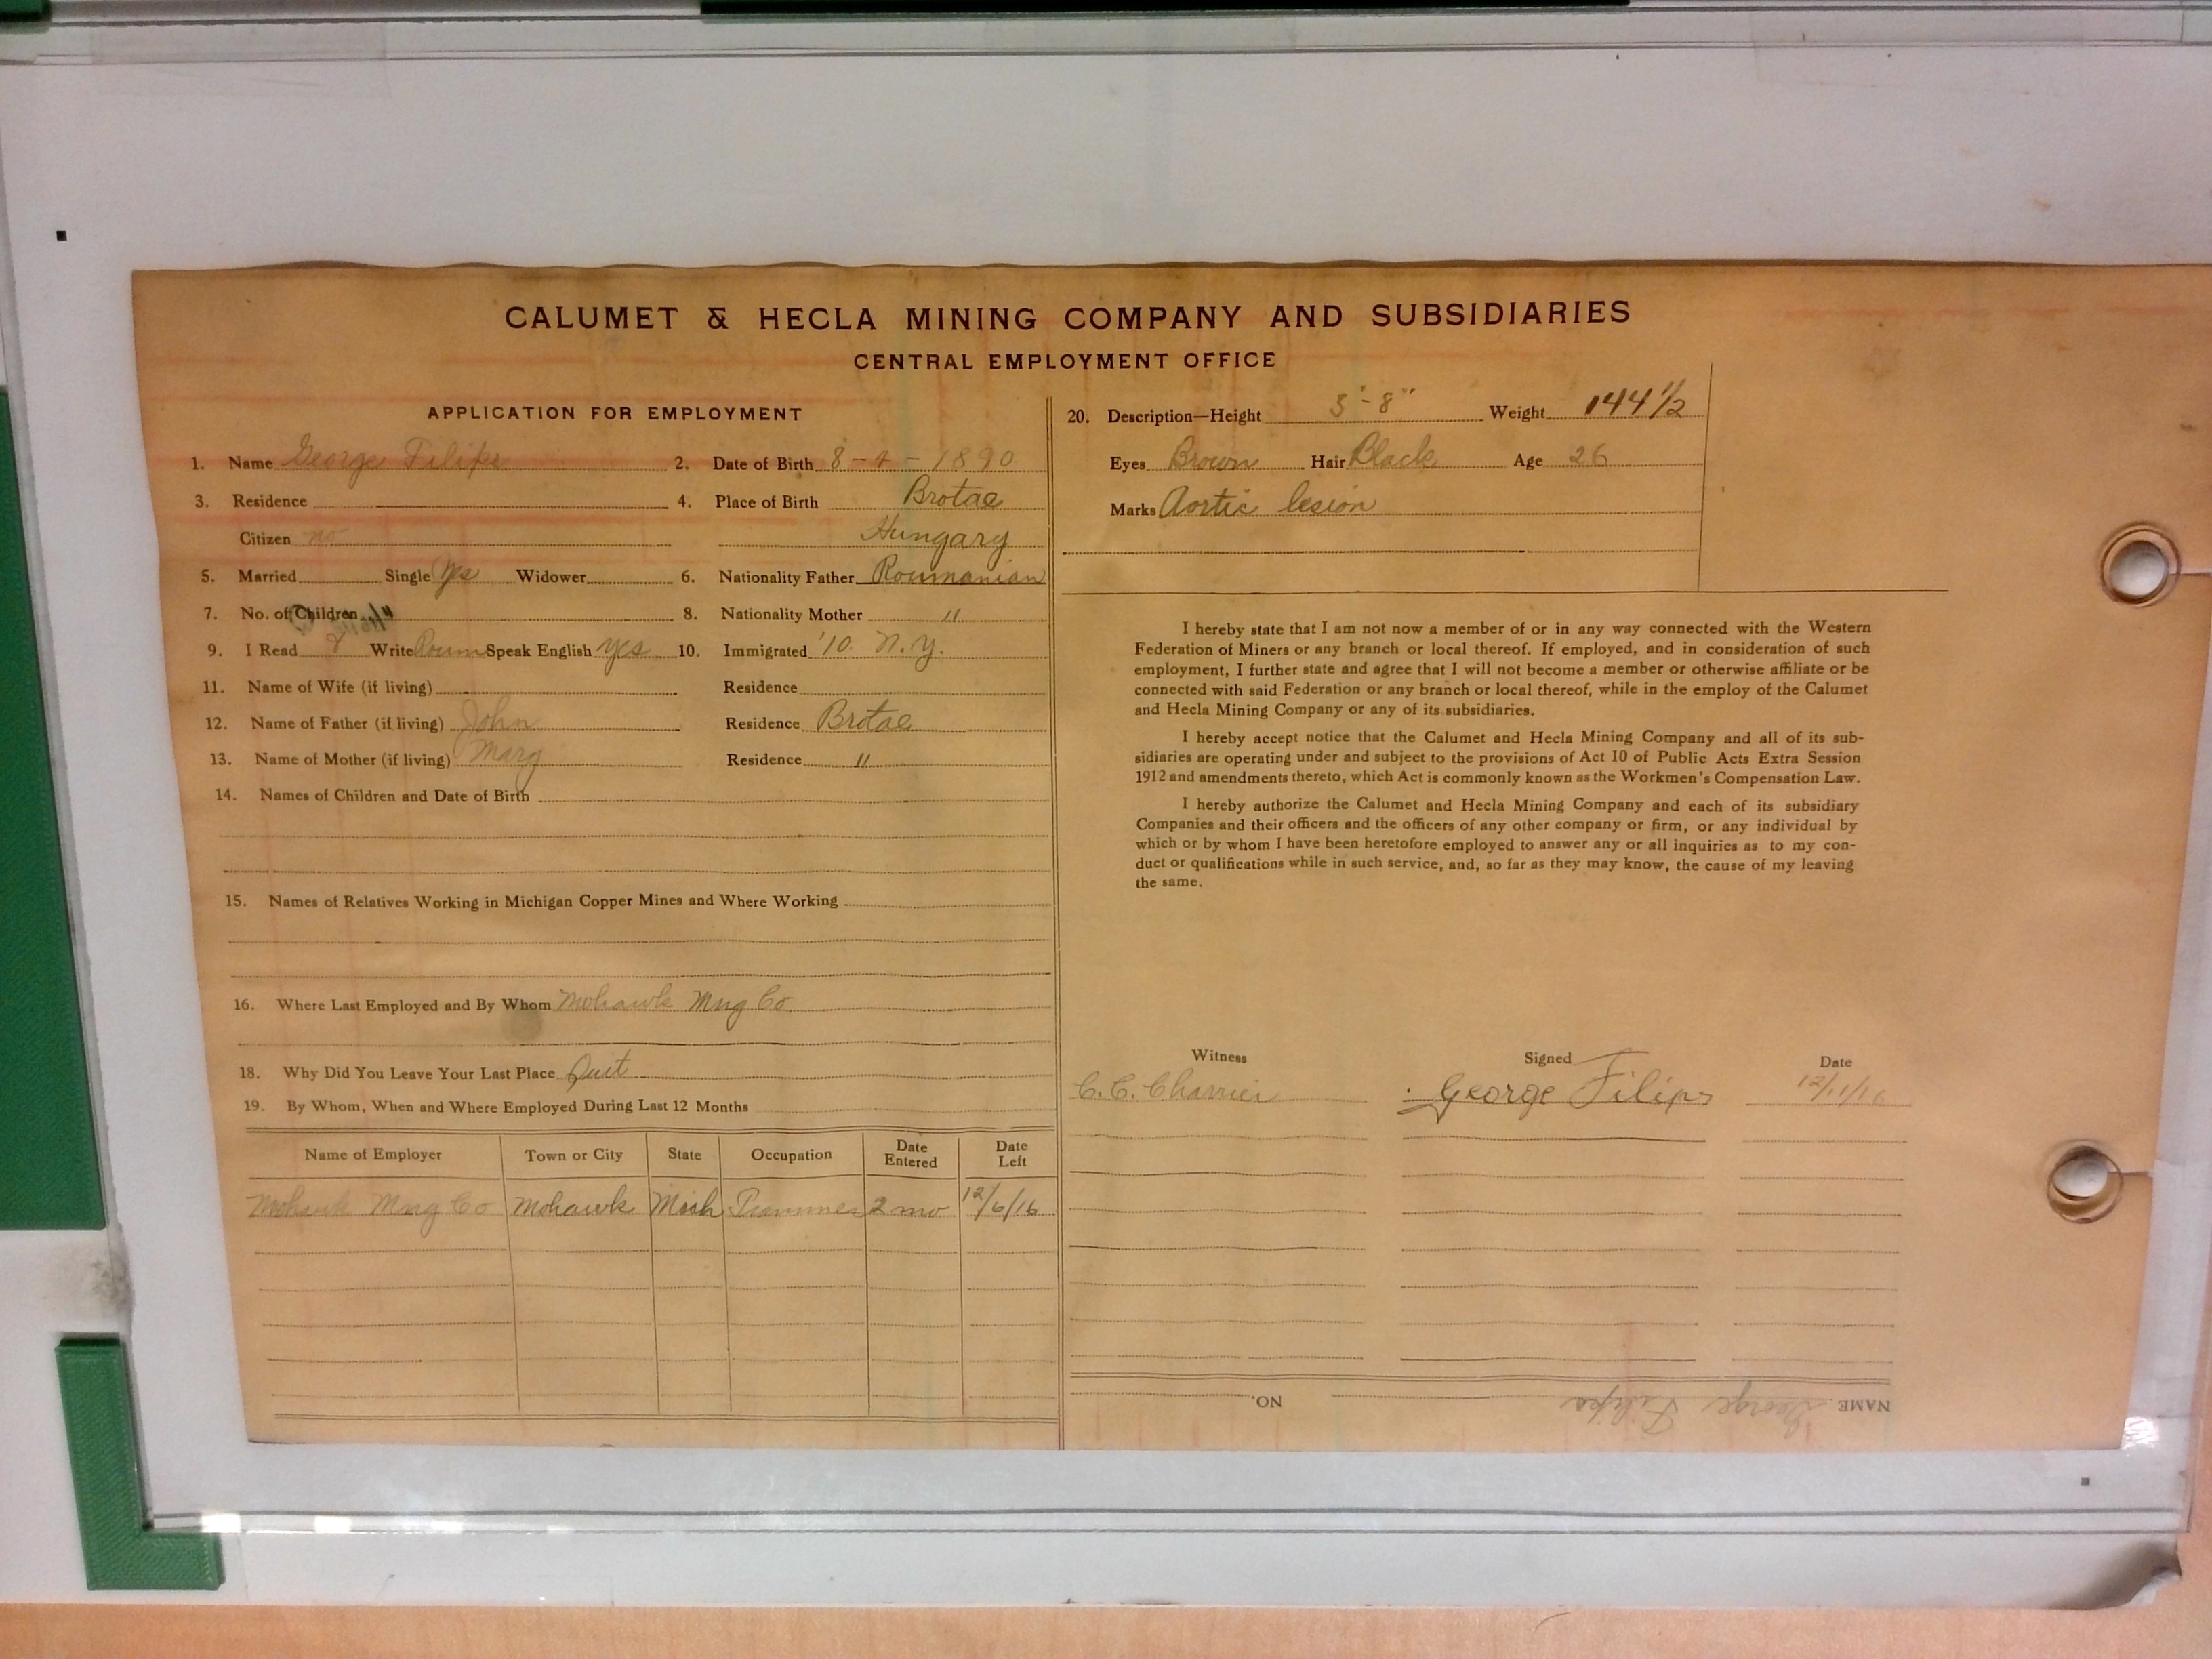 CALUMET & HECLA MINING COMPANY AND SUBSIDIARIES
CENTRAL EMPLOYMENT OFFICE
APPLICATION FOR EMPLOYMENT
1. Name George Filips 2. Date of Birth 8-4-1890
3. Residence 4. Place of Birth Brotae
Citizen no Hungary
5. Married Single Yes Widower 6. Nationality Father Roumanian
7. No. of Children 8. Nationality Mother "
9. I Read & Write Roum Speak English yes 10. Immigrated '10. N.Y.
11. Name of Wife (if living) Residence
12. Name of Father (if living) John Residence Brotae
13. Name of Mother (if living) Mary Residence "
14. Names of Children and Date of Birth
15. Names of Relatives Working in Michigan Copper Mines and Where Working
16. Where Last Employed and By Whom Mohawk Mng Co
18. Why Did You Leave Your Last Place Quit
19. By Whom, When and Where Employed During Last 12 Months
Name of Employer Town or City State Occupation Date Entered Date Left
Mohawk Mng Co Mohawk Mich Trammer 2 mo 12/6/16
20. Description—Height 5'-8" Weight 144 1/2
Eyes Brown Hair Black Age 26
Marks Aortic lesion
I hereby state that I am not now a member of or in any way connected with the Western
Federation of Miners or any branch or local thereof. If employed, and in consideration of such
employment, I further state and agree that I will not become a member or otherwise affiliate or be
connected with said Federation or any branch or local thereof, while in the employ of the Calumet
and Hecla Mining Company or any of its subsidiaries.
I hereby accept notice that the Calumet and Hecla Mining Company and all of its sub-
sidiaries are operating under and subject to the provisions of Act 10 of Public Acts Extra Session
1912 and amendments thereto, which Act is commonly known as the Workmen's Compensation Law.
I hereby authorize the Calumet and Hecla Mining Company and each of its subsidiary
Companies and their officers and the officers of any other company or firm, or any individual by
which or by whom I have been heretofore employed to answer any or all inquiries as to my con-
duct or qualifications while in such service, and, so far as they may know, the cause of my leaving
the same.
Witness Signed Date
C. C. Charrier George Filips 12/11/16
NAME George Filips NO.